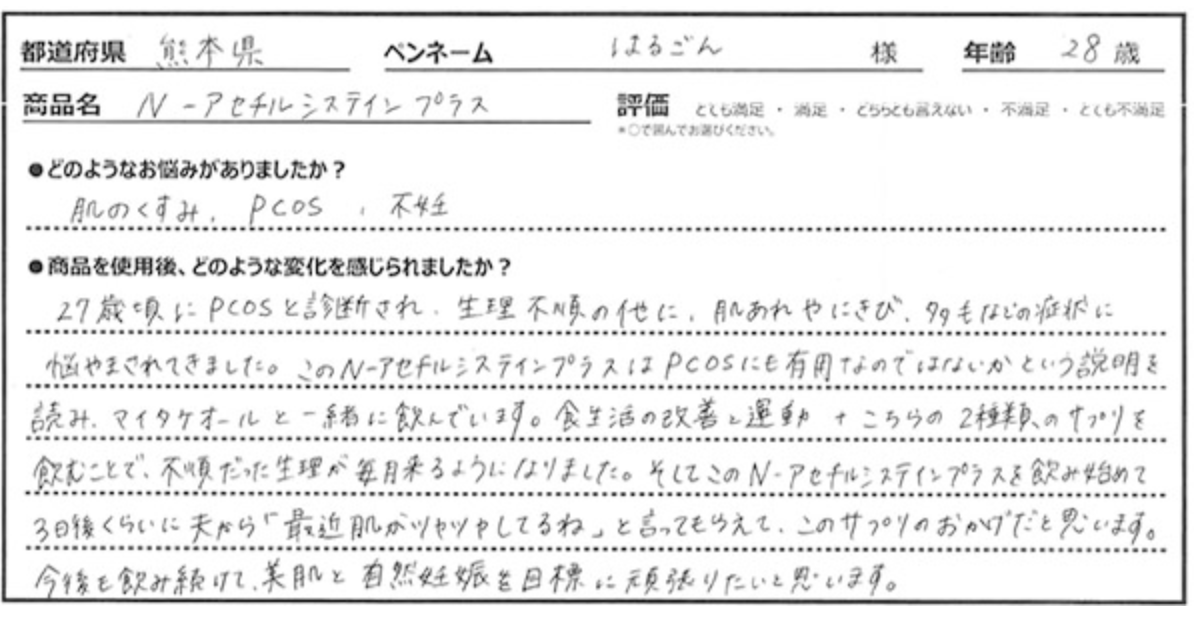 都道府県 熊本県 ペンネーム はるごん 様 年齢 28 歳
商品名 N-アセチルシステインプラス 評価 とても満足 ・ 満足 ・ どちらとも言えない ・ 不満足 ・ とても不満足
*○で囲んでお選びください。
●どのようなお悩みがありましたか？
肌のくすみ、PCOS、不妊
●商品を使用後、どのような変化を感じられましたか？
27歳頃にPCOSと診断され、生理不順の他に、肌あれやにきび、多毛などの症状に
悩やまされてきました。このN-アセチルシステインプラスはPCOSにも有用なのではないかという説明を
読み、マイタケオールと一緒に飲んでいます。食生活の改善と運動 + こちらの2種類のサプリを
飲むことで、不順だった生理が毎月来るようになりました。そしてこのN-アセチルシステインプラスを飲み始めて
3日後くらいに夫から「最近肌がツヤツヤしてるね」と言ってもらえて、このサプリのおかげだと思います。
今後も飲み続けて、美肌と自然妊娠を目標に頑張りたいと思います。